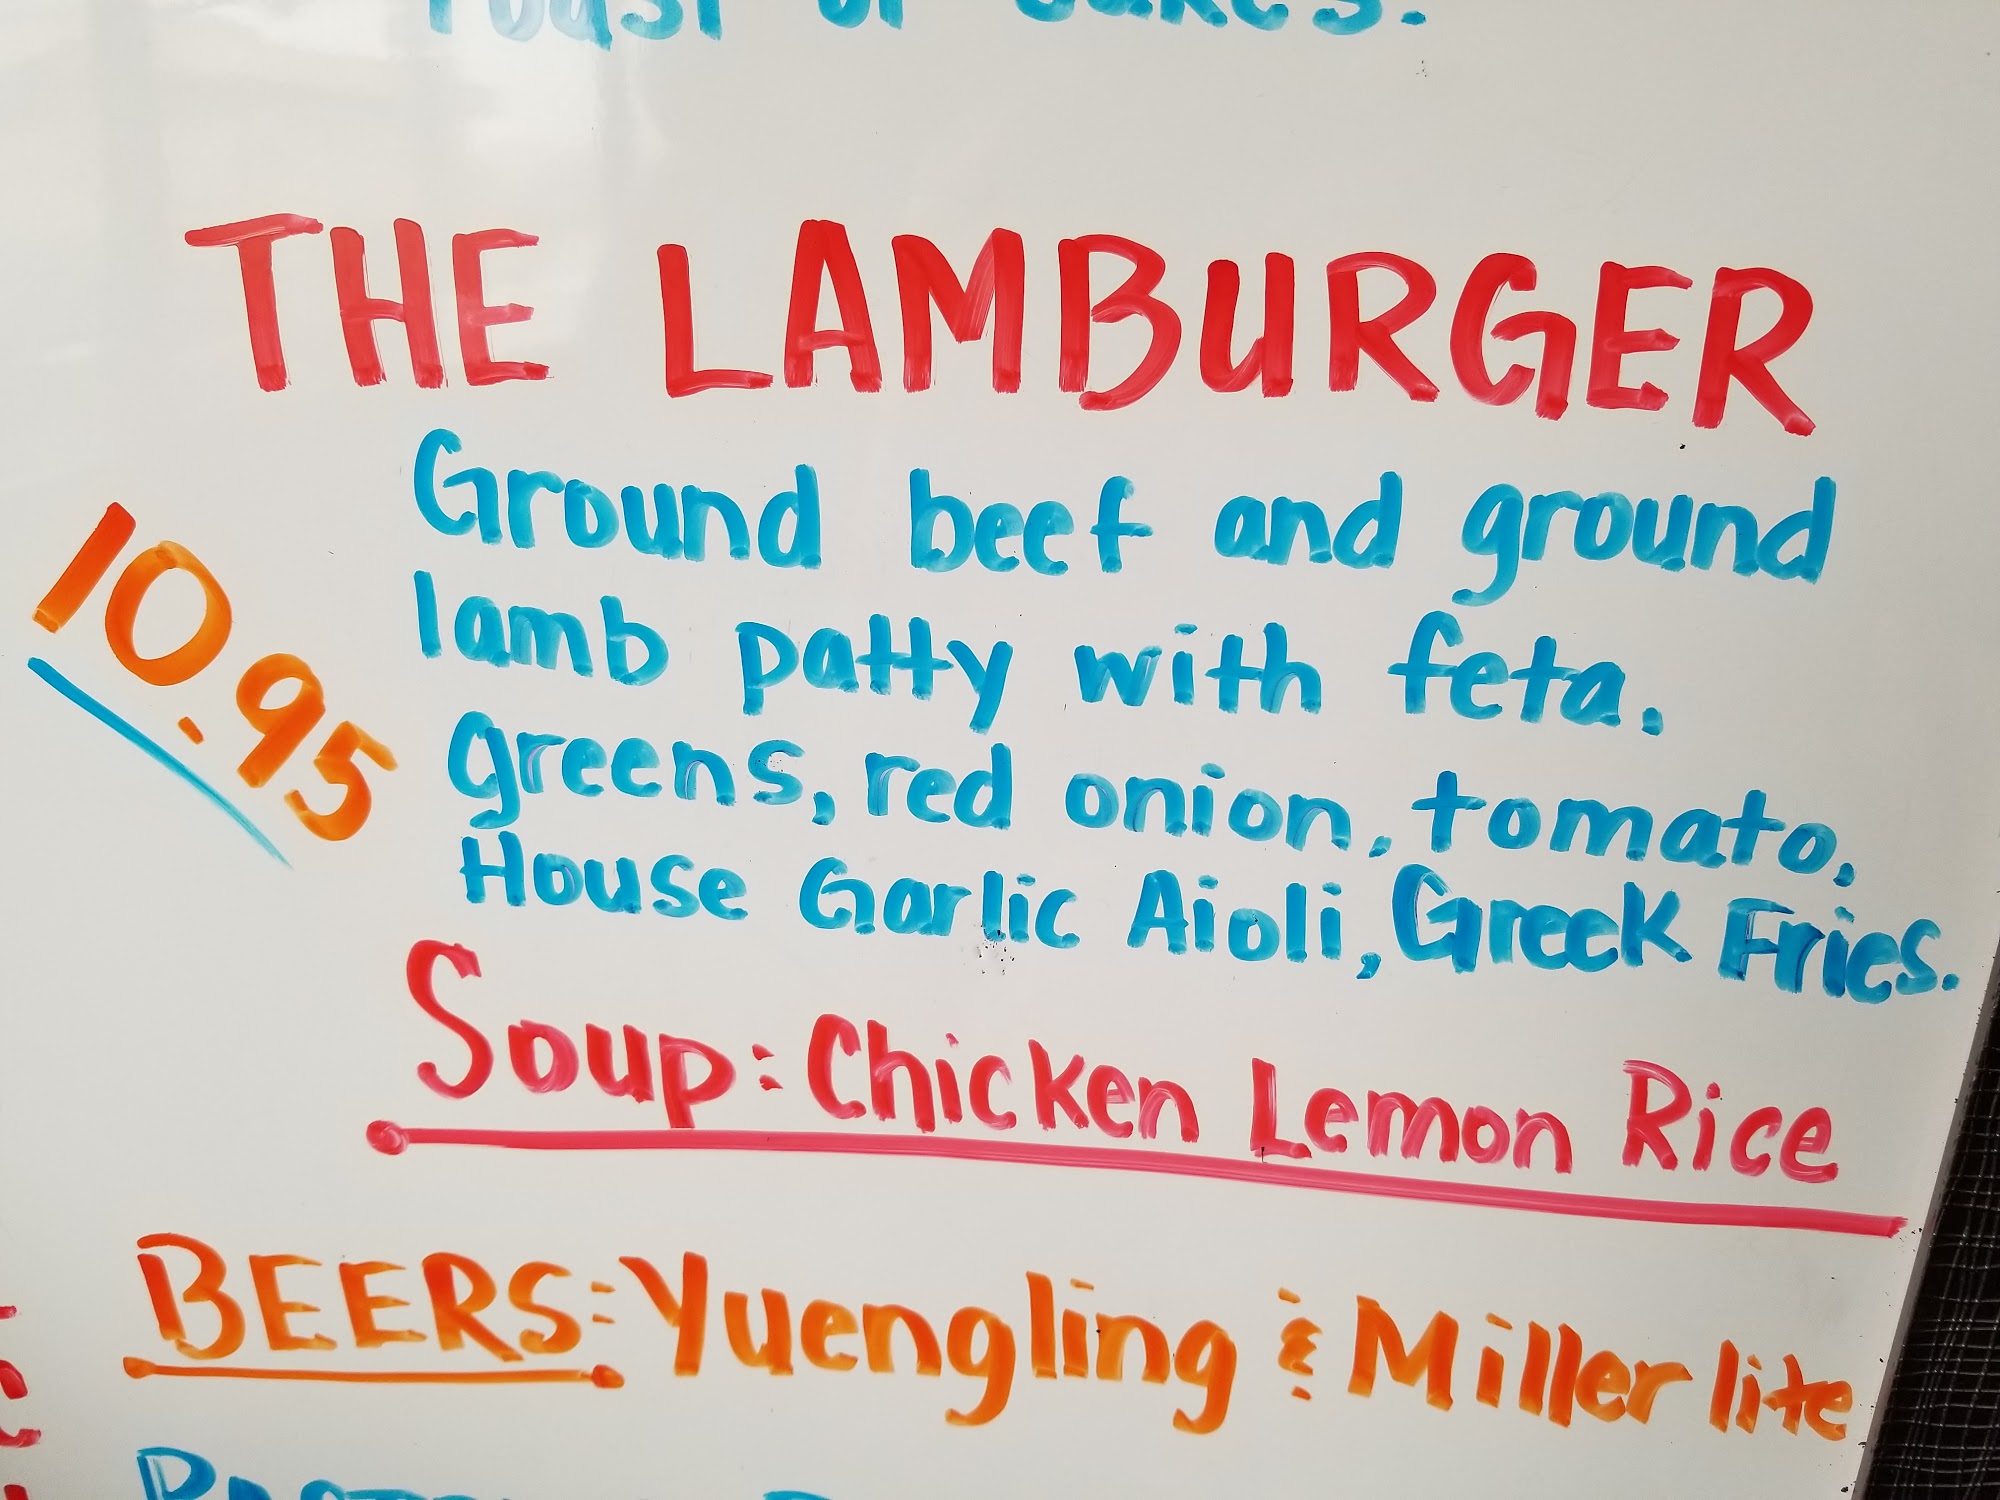 Toast or Cakes.
THE LAMBURGER
Ground beef and ground
lamb patty with feta.
10.95
greens, red onion, tomato,
House Garlic Aioli, Greek Fries.
Soup: Chicken Lemon Rice
BEERS: Yuengling & Miller lite